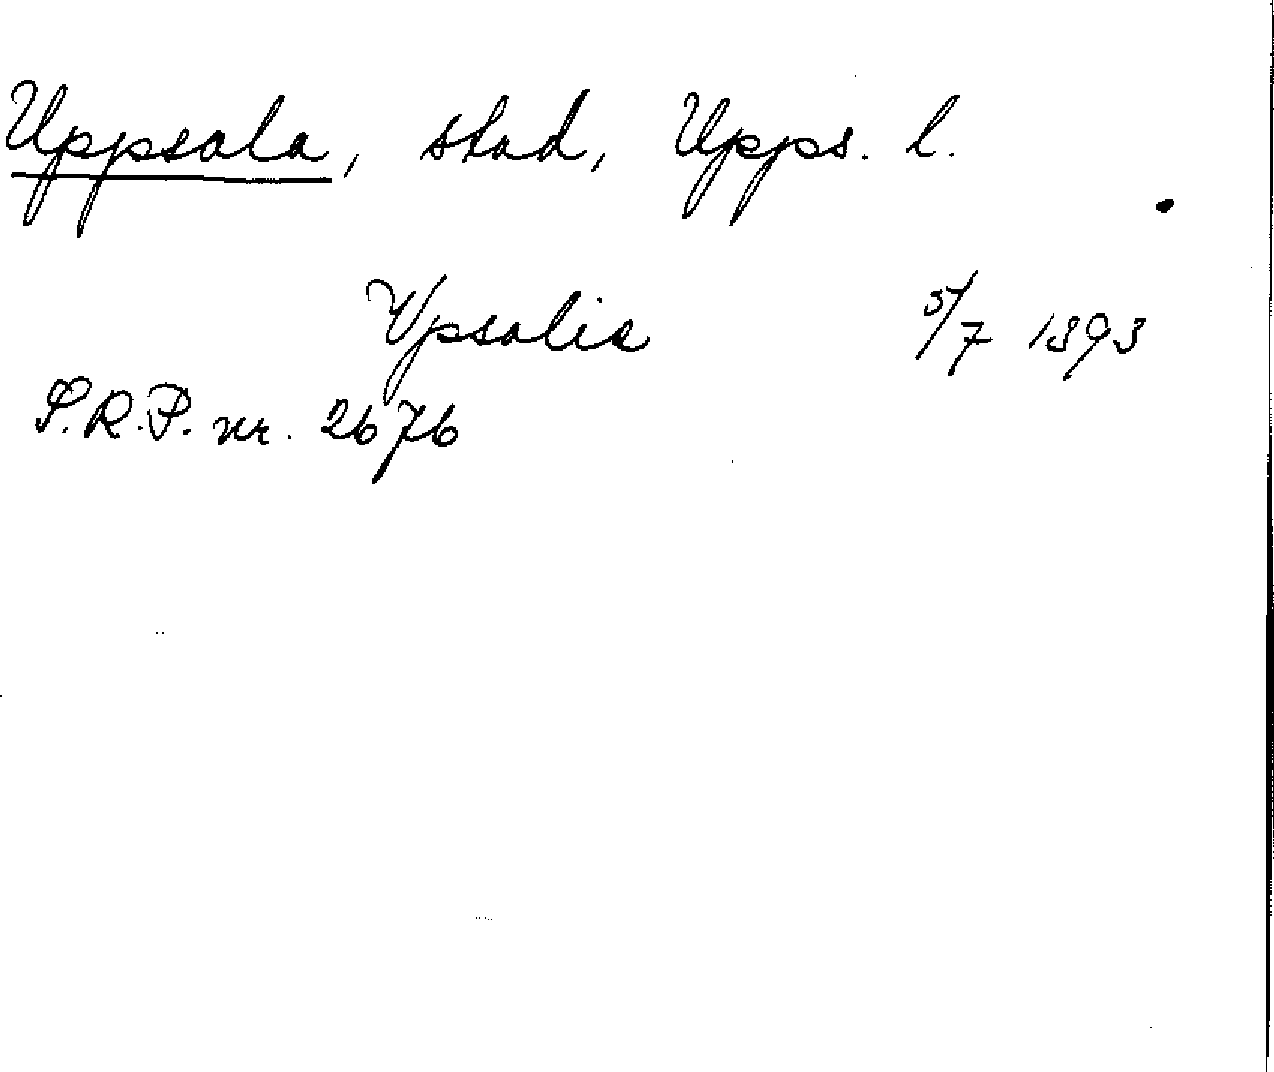 Uppsala, stad, Upps. l.
Vpsalie 5/7 1393
S.R.P. nr. 2676